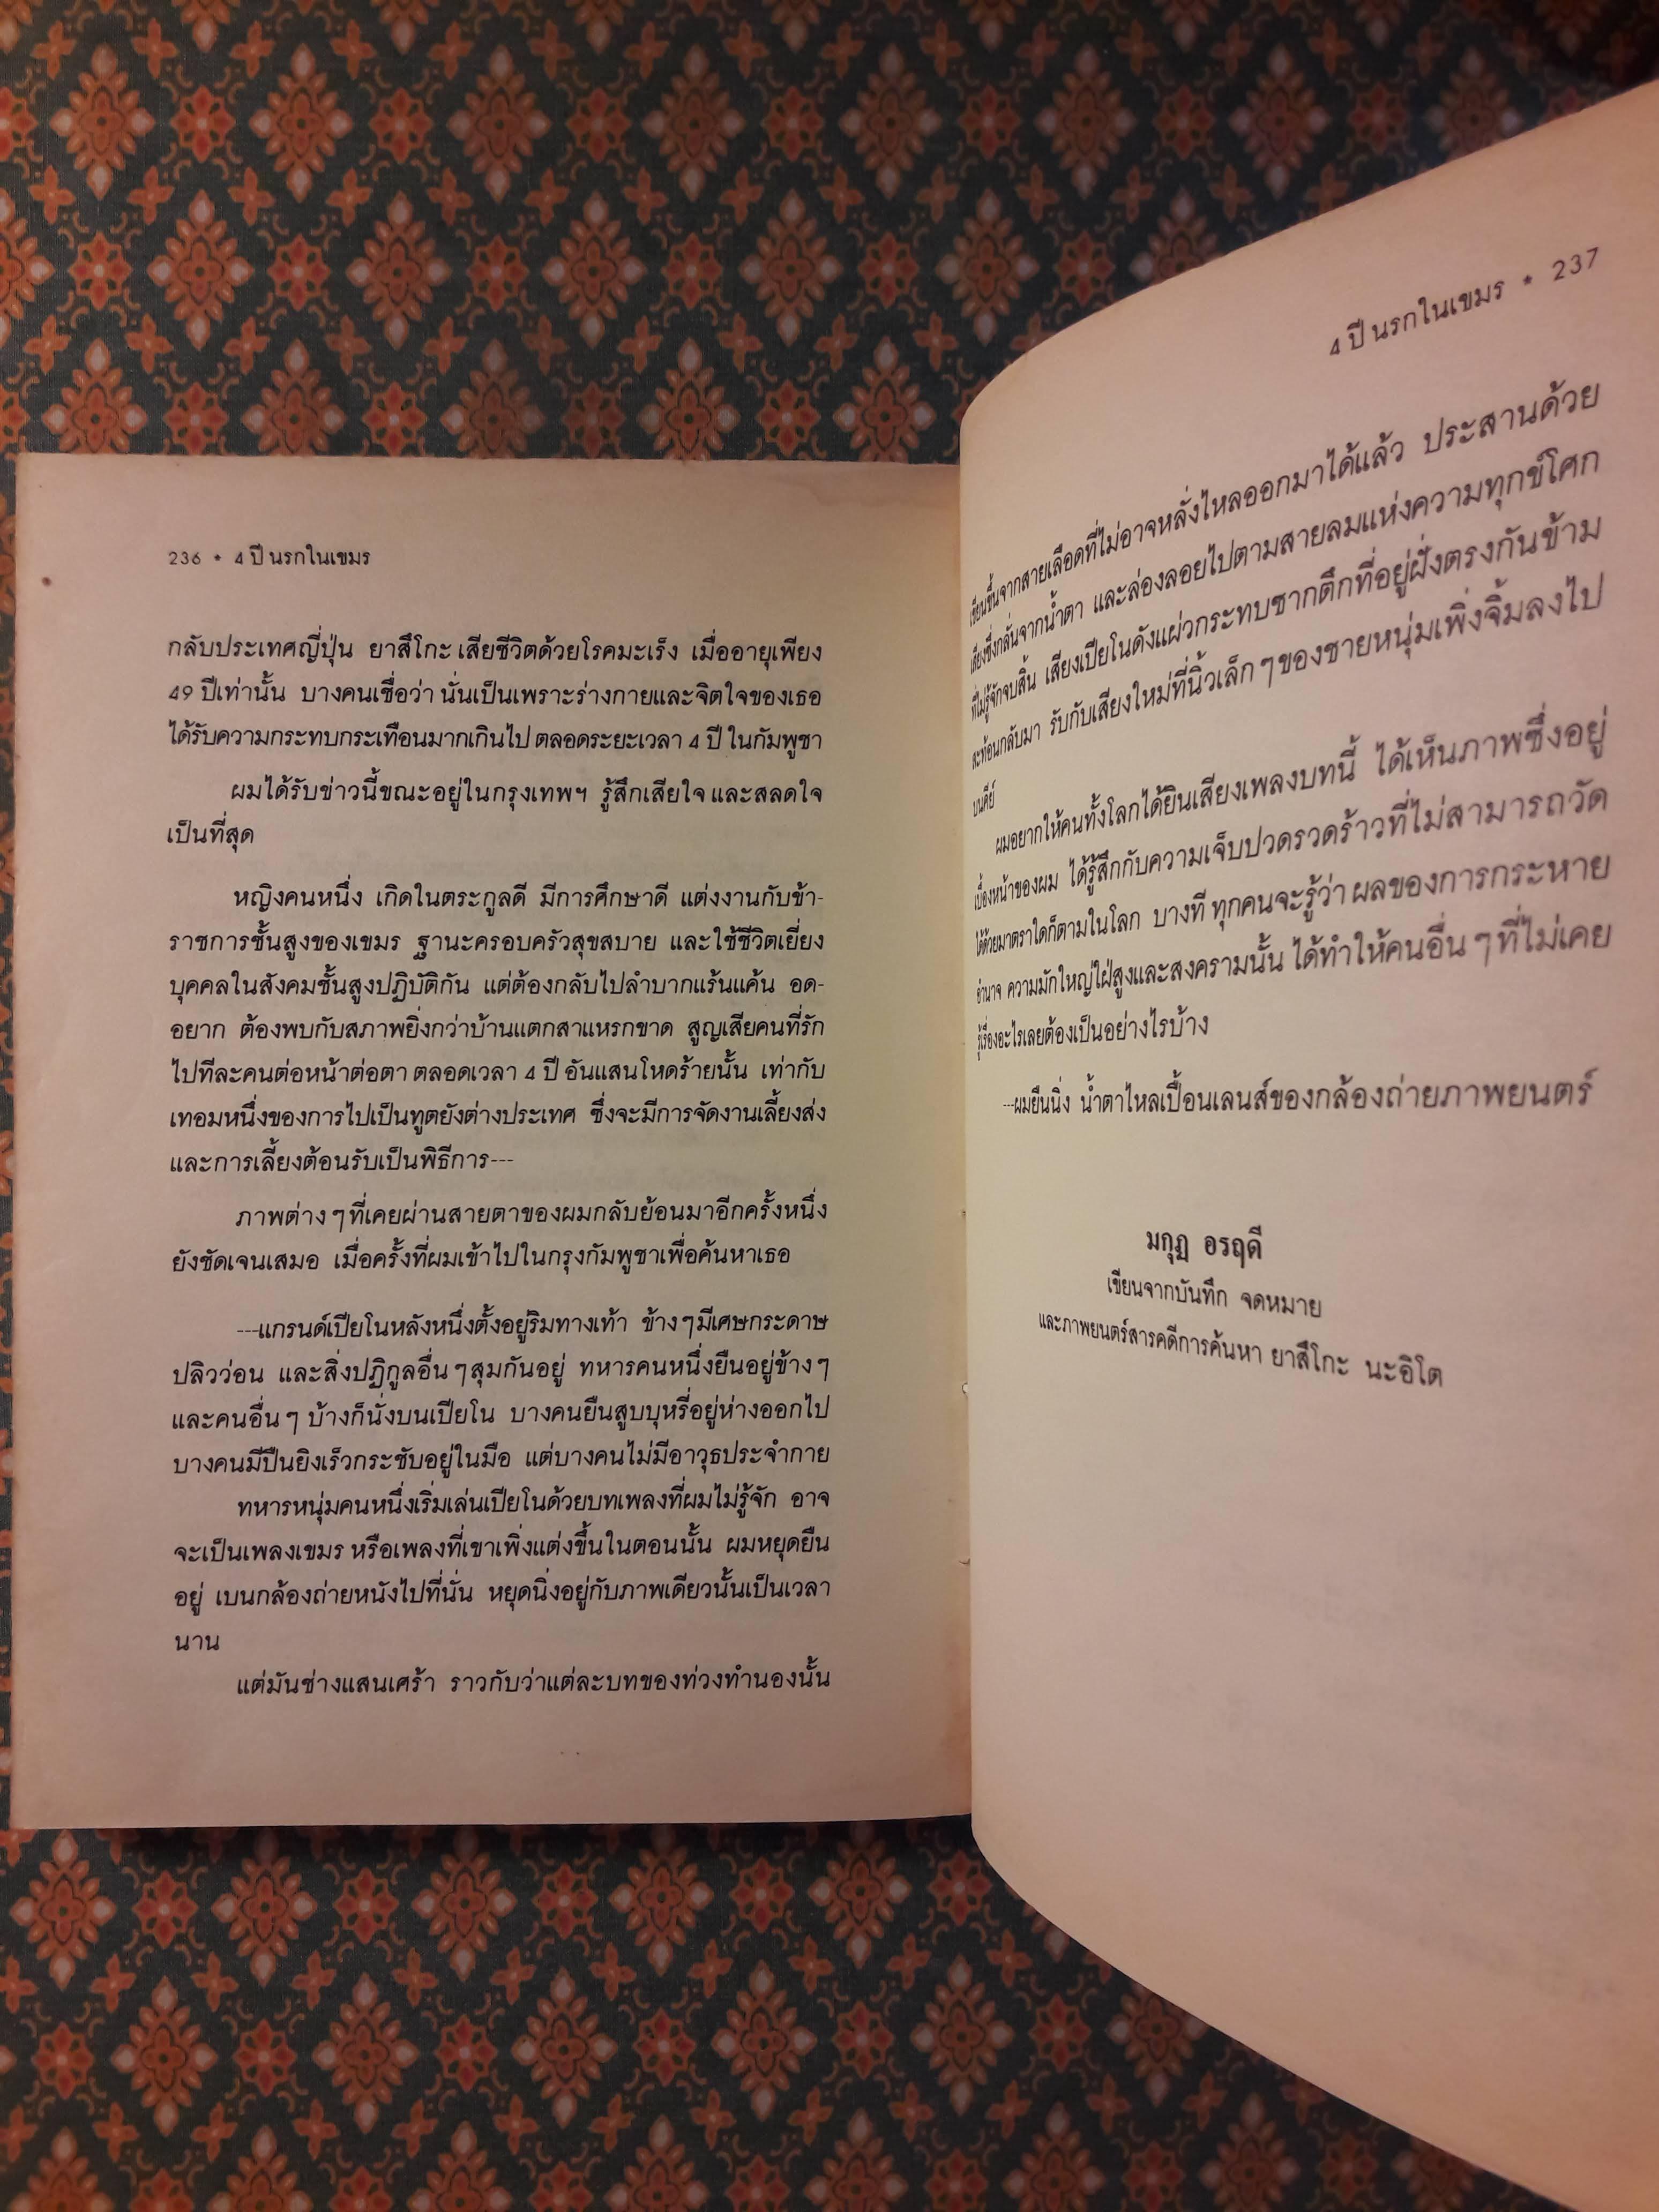 236 * 4 ปี นรกในเขมร
กลับประเทศญี่ปุ่น ยาสึโกะ เสียชีวิตด้วยโรคมะเร็ง เมื่ออายุเพียง
49 ปีเท่านั้น บางคนเชื่อว่า นั่นเป็นเพราะร่างกายและจิตใจของเธอ
ได้รับความกระทบกระเทือนมากเกินไป ตลอดระยะเวลา 4 ปี ในกัมพูชา
ผมได้รับข่าวนี้ขณะอยู่ในกรุงเทพฯ รู้สึกเสียใจ และสลดใจ
เป็นที่สุด
หญิงคนหนึ่ง เกิดในตระกูลดี มีการศึกษาดี แต่งงานกับข้า-
ราชการชั้นสูงของเขมร ฐานะครอบครัวสุขสบาย และใช้ชีวิตเยี่ยง
บุคคลในสังคมชั้นสูงปฏิบัติกัน แต่ต้องกลับไปลำบากแร้นแค้น อด-
อยาก ต้องพบกับสภาพยิ่งกว่าบ้านแตกสาแหรกขาด สูญเสียคนที่รัก
ไปทีละคนต่อหน้าต่อตา ตลอดเวลา 4 ปี อันแสนโหดร้ายนั้น เท่ากับ
เทอมหนึ่งของการไปเป็นทูตยังต่างประเทศ ซึ่งจะมีการจัดงานเลี้ยงส่ง
และการเลี้ยงต้อนรับเป็นพิธีการ---
ภาพต่าง ๆ ที่เคยผ่านสายตาของผมกลับย้อนมาอีกครั้งหนึ่ง
ยังชัดเจนเสมอ เมื่อครั้งที่ผมเข้าไปในกรุงกัมพูชาเพื่อค้นหาเธอ
---แกรนด์เปียโนหลังหนึ่งตั้งอยู่ริมทางเท้า ข้าง ๆ มีเศษกระดาษ
ปลิวว่อน และสิ่งปฏิกูลอื่น ๆ สุมกันอยู่ ทหารคนหนึ่งยืนอยู่ข้าง ๆ
และคนอื่น ๆ บ้างก็นั่งบนเปียโน บางคนยืนสูบบุหรี่อยู่ห่างออกไป
บางคนมีปืนยิงเร็วกระชับอยู่ในมือ แต่บางคนไม่มีอาวุธประจำกาย
ทหารหนุ่มคนหนึ่งเริ่มเล่นเปียโนด้วยบทเพลงที่ผมไม่รู้จัก อาจ
จะเป็นเพลงเขมร หรือเพลงที่เขาเพิ่งแต่งขึ้นในตอนนั้น ผมหยุดยืน
อยู่ เบนกล้องถ่ายหนังไปที่นั่น หยุดนิ่งอยู่กับภาพเดียวนั้นเป็นเวลา
นาน
แต่มันช่างแสนเศร้า ราวกับว่าแต่ละบทของท่วงทำนองนั้น
4 ปี นรกในเขมร * 237
เขียนขึ้นจากสายเลือดที่ไม่อาจหลั่งไหลออกมาได้แล้ว ประสานด้วย
เสียงซึ่งกลั่นจากน้ำตา และล่องลอยไปตามสายลมแห่งความทุกข์โศก
ที่ไม่รู้จักจบสิ้น เสียงเปียโนดังแผ่วกระทบซากตึกที่อยู่ฝั่งตรงกันข้าม
สะท้อนกลับมา รับกับเสียงใหม่ที่นิ้วเล็ก ๆ ของชายหนุ่มเพิ่งจิ้มลงไป
บนคีย์
ผมอยากให้คนทั้งโลกได้ยินเสียงเพลงบทนี้ ได้เห็นภาพซึ่งอยู่
เบื้องหน้าของผม ได้รู้สึกกับความเจ็บปวดรวดร้าวที่ไม่สามารถวัด
ได้ด้วยมาตราใดก็ตามในโลก บางที ทุกคนจะรู้ว่า ผลของการกระหาย
อำนาจ ความมักใหญ่ใฝ่สูงและสงครามนั้น ได้ทำให้คนอื่น ๆ ที่ไม่เคย
รู้เรื่องอะไรเลยต้องเป็นอย่างไรบ้าง
---ผมยืนนิ่ง น้ำตาไหลเปื้อนเลนส์ของกล้องถ่ายภาพยนตร์
มกุฏ อรฤดี
เขียนจากบันทึก จดหมาย
และภาพยนตร์สารคดีการค้นหา ยาสึโกะ นะอิโต